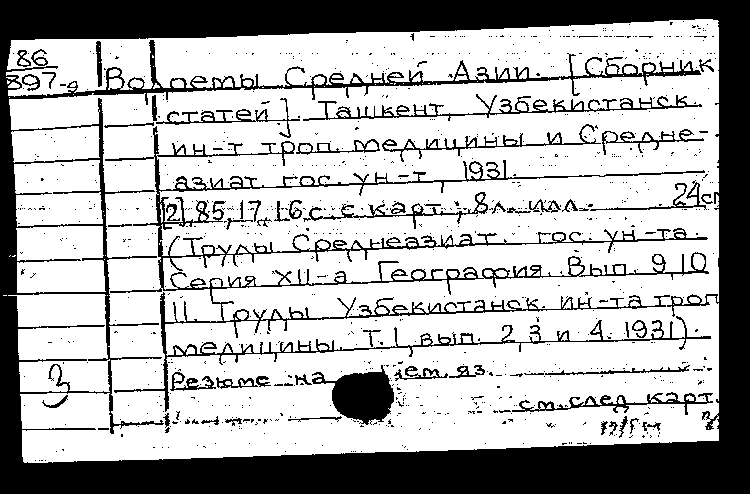 86
897-д Водоемы Средней Азии. [Сборник
статей]. Ташкент, Узбекистанск.
ин-т троп. медицины и Средне-
азиат. гос. ун-т, 1931.
[2], 85, 17, 16 с. с карт.; 8 л. илл. 24см
(Труды Среднеазиат. гос. ун-та.
Серия XII-а География. Вып. 9, 10
11. Труды Узбекистанск. ин-та троп
медицины. Т. 1, вып. 2, 3 и 4. 1931).
3 Резюме на нем. яз.
см. след карт.